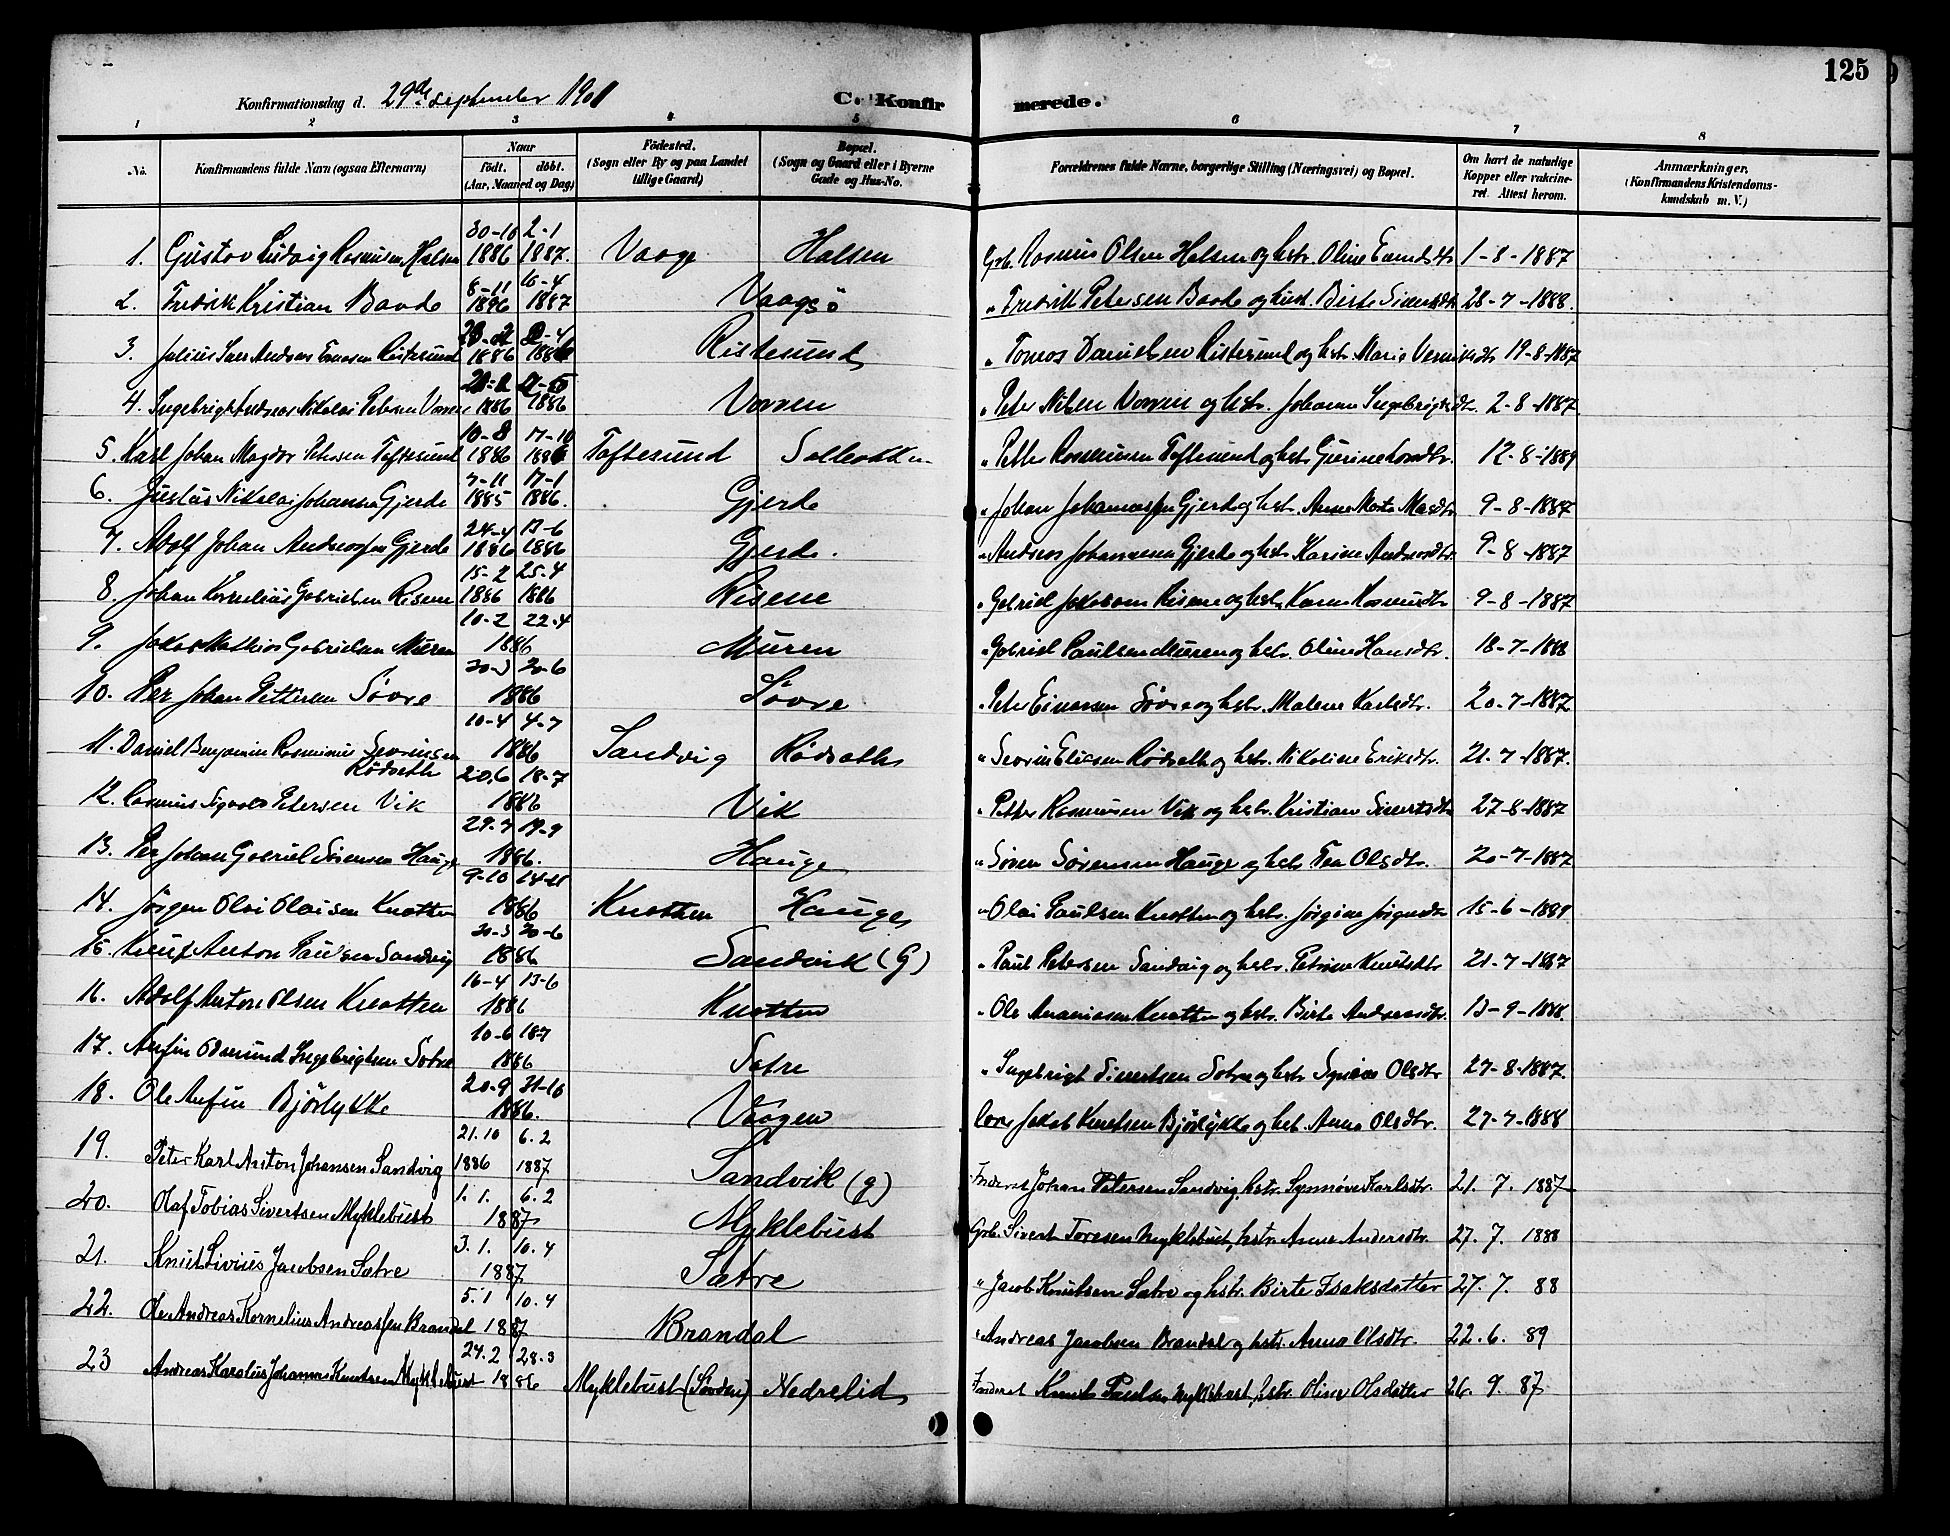 125
Konfirmationsdag d. 29de september 1901 C. Konfirmerede.
1 2 3 4 5 6 7 8
No. Konfirmandens fulde Navn (ogsaa Efternavn) Naar født. døbt. (Aar, Maaned og Dag) Födested. (Sogn eller By og paa Landet tillige Gaard) Bopæl. (Sogn og Gaard eller i Byerne Gade og Hus-No. Forældrenes fulde Navne, borgerlige Stilling (Næringsvei) og Bopæl. Om havt de naturlige Kopper eller vakcineret. Attest herom. Anmærkninger. (Konfirmandens Kristendomskundskab m. V.)
1. Gustav Ludvig Rasmusen Halsen 30-10 1886 2-1 1887. Vaage Halsen Grb. Rasmus Olsen Halsen og hstr. Oline 1-8-1887
2. Fredrik Kristian Baade 6-11 1886 16-4 1887 Vaagsö " Fredrik Petersen Baade og hust. Birte Siversdtr 28-7-1888.
3. Julius Andreas Ristesund 1886 Ristesund " Tomas Danielsen Ristesund og hstr. Marie 19-8-1887
4. Ingebrigt Andreas Nikolai Petersen 1886 1886 " Peter Nilsen og hstr. Johanne Ingebrigtsdtr. 2-8-1887
5. Karl Johan Magdor Petersen Toftesund 10-8 1886 17-10 1886 Toftesund " Petter Rasmussen Toftesund og hstr. 12-8-1889
6. Justus Nikolai Johansen Gjerde 7-11 1885 17-1 1886. Gjerde " Johan Johannessen Gjerde og hstr. Anne Marte Masdtr. 9-8-1887
7. Adolf Johan Andreassen Gjerde 24-4 1886 13-6 1886 Gjerde. " Andreas Johannesen Gjerde og hstr. Karine Andersdtr. 9-8-1887
8. Johan Kornelius Gabrielsen Risene 15-2 1886 25-4 1886 Risene " Gabriel Jakobsen Risene og hstr. Karen Rasmusdtr 9-8-1887
9. Jakob Mathias Gabrielsen Muren 10-2 22-4 1886 Muren " Gabriel Paulsen Muren og hstr. Oline Hansdtr. 18-7-1888
10. Per Johan Pettersen Sövre 20-3 20-6 1886 Sövre " Peter Einarsen Sövre og hstr. Malene Karlsdtr. 20-7-1887
11. Daniel Benjamin Rasmus Severinsen Rödseth 10-4 4-7 1886 Sandvig Rödseth " Severin Eliasen Rödseth og hstr. Nikoline Eriksdtr. 21-7-1887.
12. Rasmus Sigvald Petersen Vik 20.6 18-7 1886 Vik " Petter Rasmusen Vik og hstr. Kristiane Sivertsdtr 27-8-1887
13. Per Johan Gabriel Sörensen Hauge 29-7 19-9 1886. Hauge " Sören Sörensen Hauge og hstr. Olsdtr. 20-7-1887
14. Jörgen Olai Olaisen Knotten 9-10 14-11 1886 Knotten Hauge " Olai Paulsen Knotten og hstr. Jörgine Jörgensdtr 15-6-1889
15. Knut Anton Paulsen Sandvig 20-3 20-6 1886 Sandvik (G) " Paul Petersen Sandvig og hstr. Petrine Knutsdtr 21-7-1887
16. Adolf Anton Olsen Knotten 16-4 13-6 1886 Knotten " Ole Ananiasen Knotten og hstr. Birte Andreasdtr. 13-9-1888.
17. Anfin Odmund Ingebrigtsen Sætre 10-6 18-7 1886 Sætre " Ingebrigt Sivertsen Sætre og hstr. Olsdtr 27-8-1887.
18. Ole Anfin Björlykke 20-9 31-10 1886. Vaagen Jakob Knutsen Björlykke og hst. Anna Olsdtr. 27-7-1888
19. Peter Karl Anton Johansen Sandvig 21.10 1886 6.2 1887 Sandvik (g) Inderst Johan Petersen Sandvig, hstr. Synnöve Karlsdtr. 21. 7. 1887
20. Olaf Tobias Sivertsen Myklebust 1. 1. 6.2 1887 Myklebust Grb. Sivert Toresen Myklebust, hstr. Anne Andersdtr. 27. 7. 1888
21. Knut Livius Jacobsen Sætre 3. 1. 10. 4 1887 Sætre " Jacob Knutsen Sætre og hstr. Birte Isaksdatter 27. 7. 88
22. Ole Andreas Kornelius Andreassen Brandal 5. 1 10. 4 1887 Brandal " Andreas Jacobsen Brandal og hstr. Anna Olsdtr. 22. 6. 89
23 Andreas Karolius Johannes Knutsen Myklebust 24. 2 28. 3 1886 Myklebust (Sövden) Nedrelid Inderst Knut Paulsen Myklebust, hstr. Oline Olsdatter 26. 9. 87